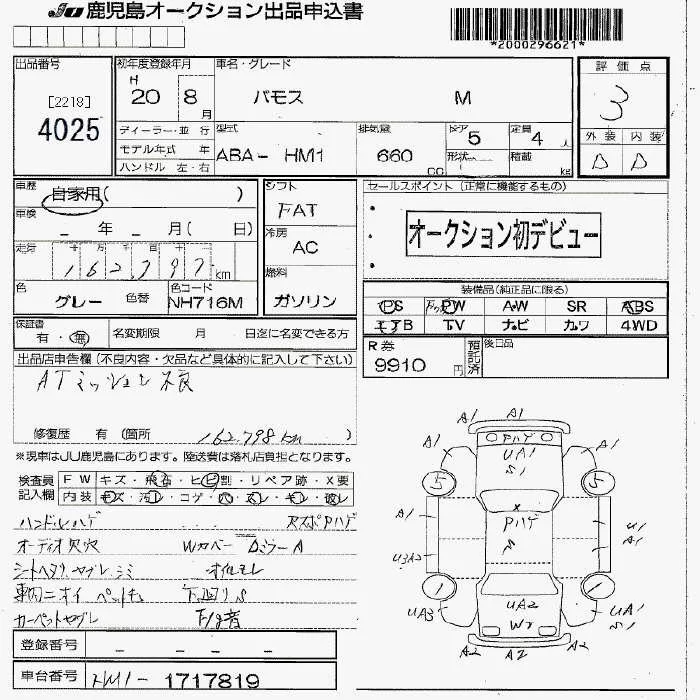 JU 鹿児島オークション出品申込書
*2000296621*
出品番号
[2218]
4025
初年度登録年月
H
20 8 月
車名・グレード
バモス M
評価点
3
外装 内装
△ △
ディーラー・並行
モデル年式 年
ハンドル 左・右
型式
ABA- HM1
排気量
660 CC
ドア
5
形状
定員
4 人
積載 kg
車歴
自家用( )
車検
_ 年 _ 月( 日)
走行
十 万 千 百 十
162,797 km
色
グレー 色替
色コード
NH716M
シフト
FAT
冷房
AC
燃料
ガソリン
セールスポイント (正常に機能するもの)
オークション初デビュー
装備品(純正品に限る)
PS PW AW SR ABS
エアB TV ナビ カワ 4WD
保証書
有・無
名変期限 月 日迄に名変できる方
R券
9910 円
預託済
後日品
出品店申告欄(不良内容・欠品など具体的に記入して下さい)
ATミッション不良
修復歴 有 (箇所 162,798km )
※現車はJU鹿児島にあります。陸送費は落札店負担となります。
検査員記入欄
FW キズ・飛石・ヒビ割・リペア跡・X要
内装 キズ・汚れ・コゲ・穴・スレ・キレ・破レ
ハンドルハゲ
オーディオ欠穴 Wカバー ドミラーA
シートヘタリ ヤブレ シミ オイルモレ
車内ニオイ ペット毛 下廻りS
カーペットヤブレ
登録番号 _ _ _ _
車台番号 HM1- 1717819
A1
A1 A1
Pハゲ
UA1
S1
5 5
A1 U1
Pハゲ A1
U3A2
1 1
UA3 UA2 UA1
W2 S1
A2 A2 A2